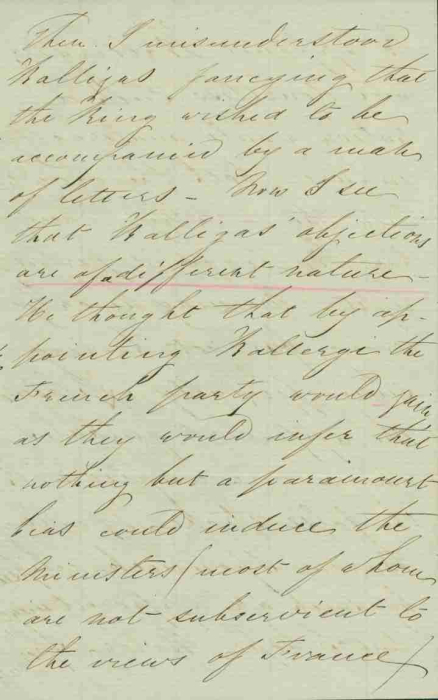 Then I misunderstood
Kalligas fancying that
the King wished to be
accompanied by a man
of letters – Now I see
that Kalligas' objections
are of a different nature –
We thought that by ap-
pointing Kallergi the
French party would gain
as they would infer that
nothing but a paramount
bias could induce the
Ministers (most of whom
are not subservient to
the views of France)